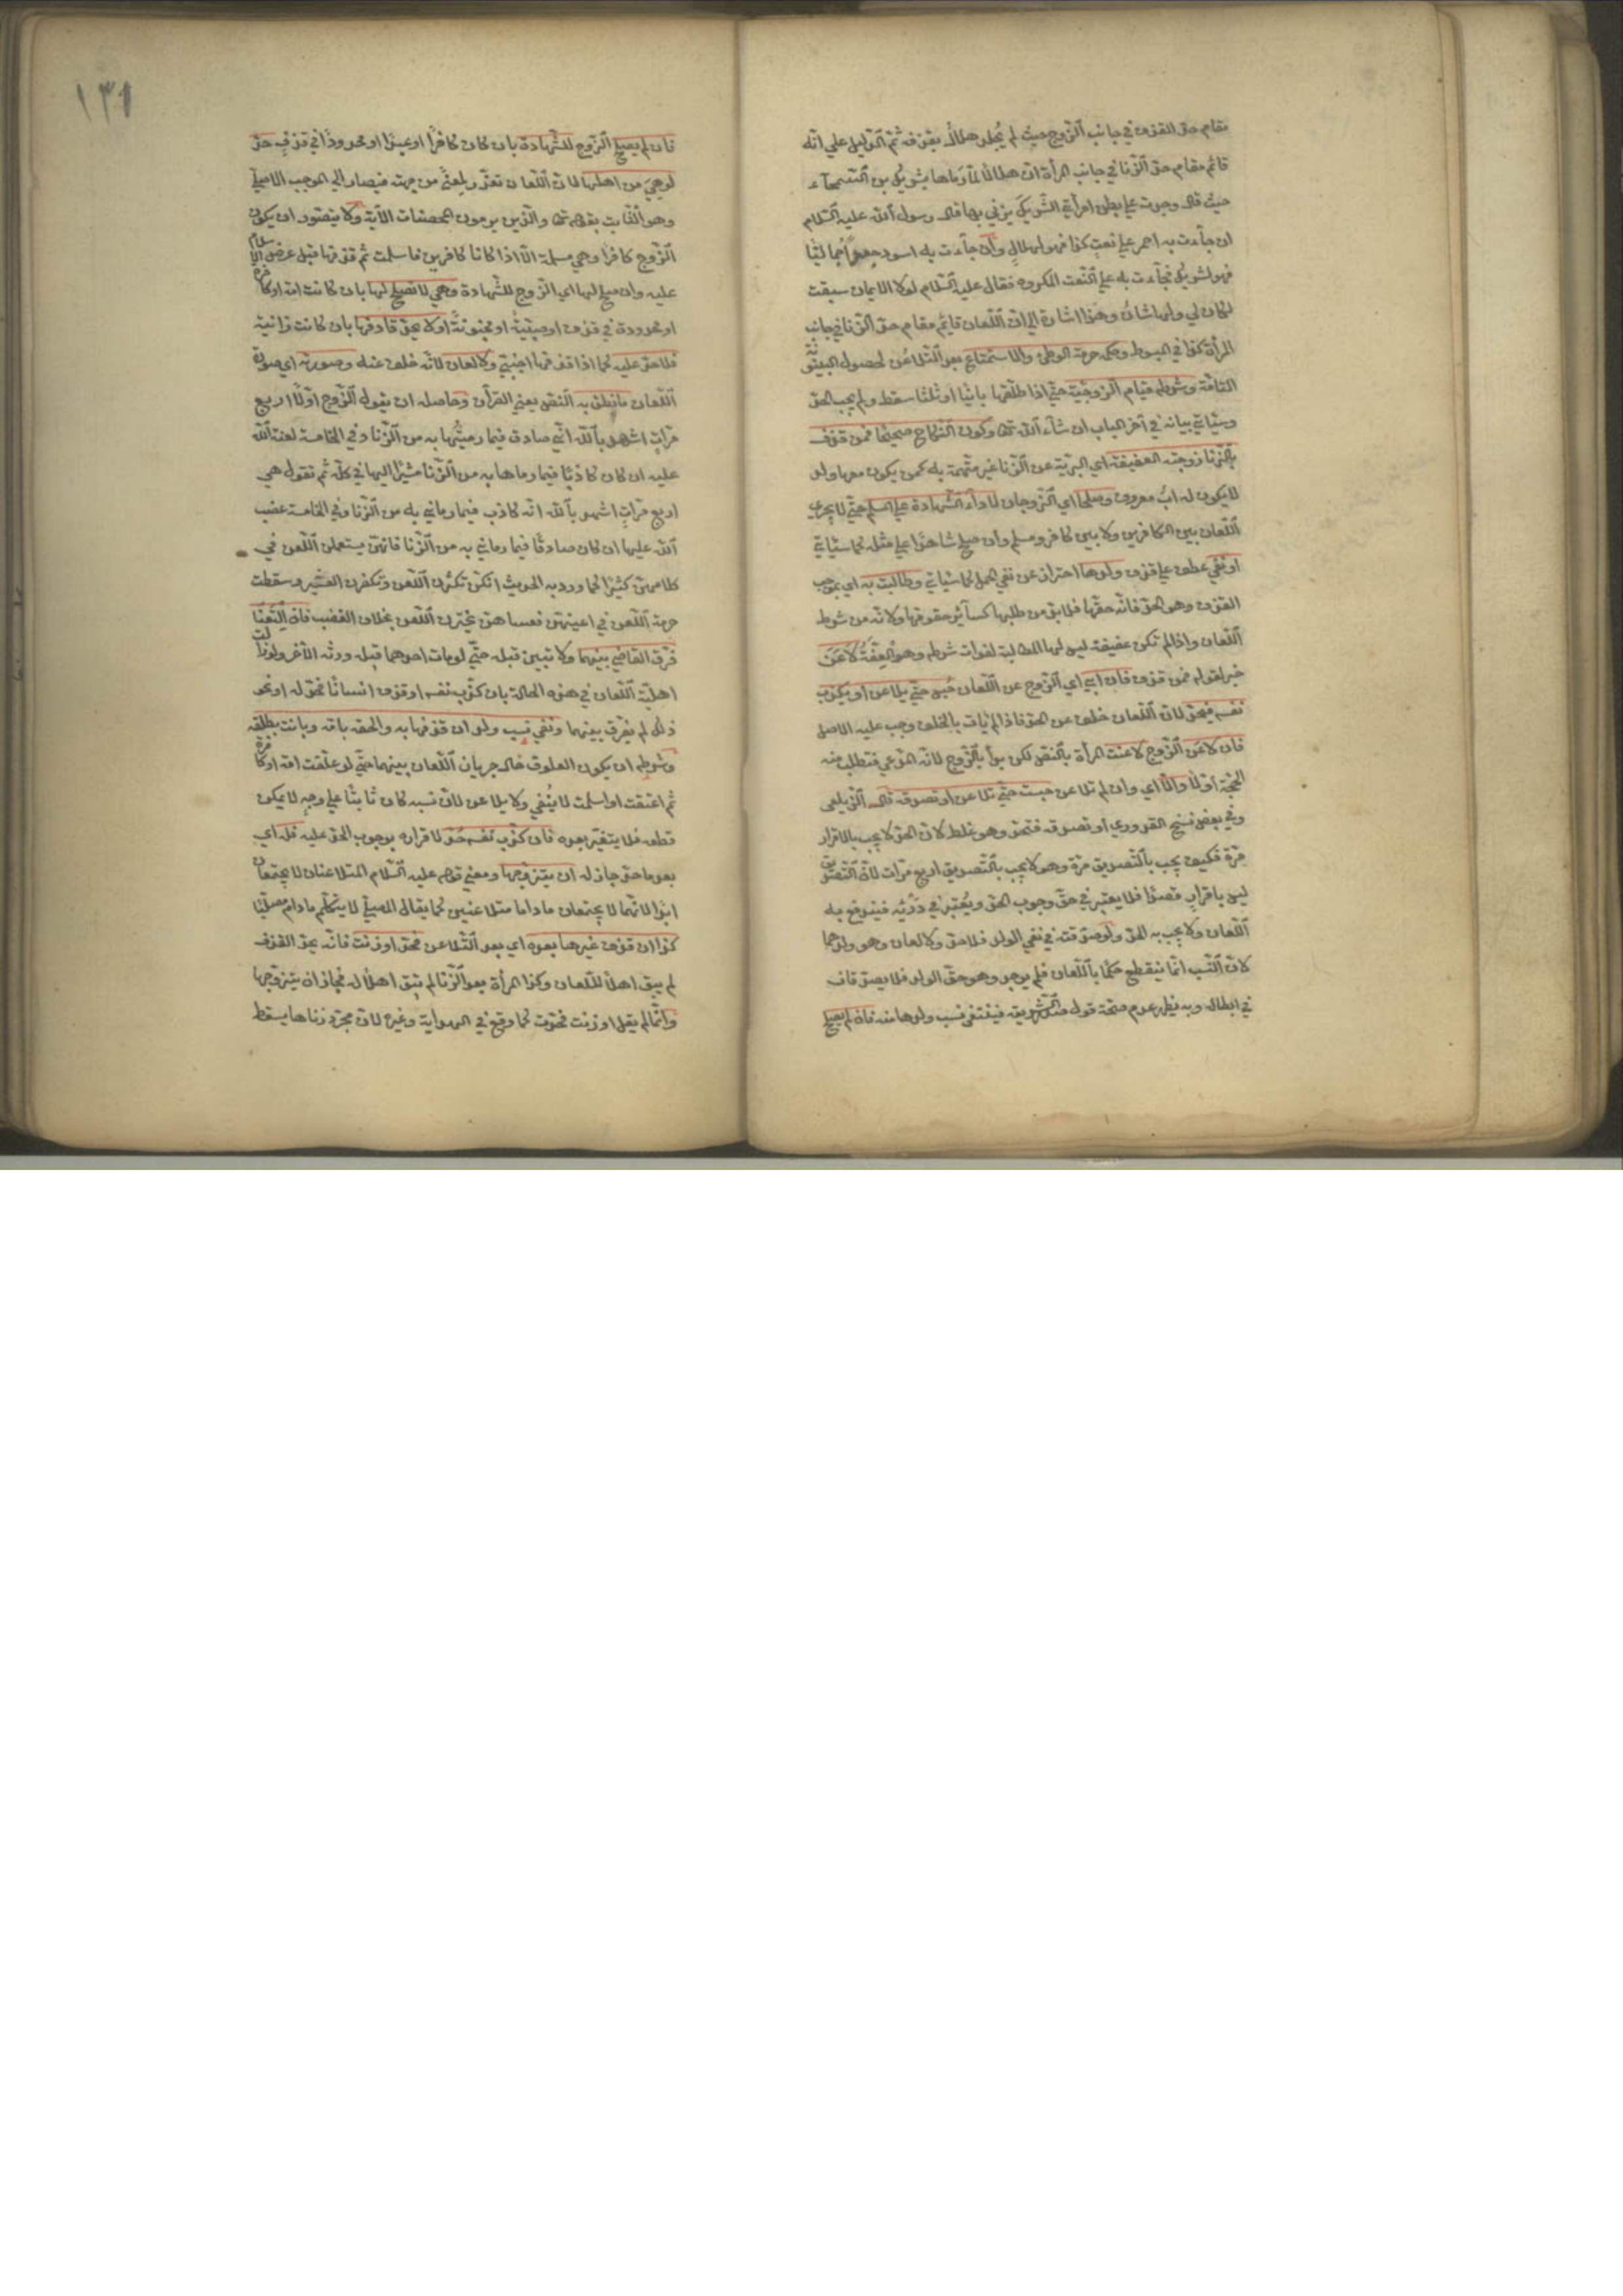 مقام حد القذف في جانب الزوج حيث لم يُجلد هلال بقذفه ثم الدليل على انه
قائم مقام حد الزنا في جانب المرأة ان هلالا لما رماها بشريك بن السمحاء
حيث قال وجدت على بطن امرأتي الشريك يزني بها قال رسول الله عليه السلام
ان جاءت به احمر على نعت كذا فهو لهلال وان جاءت به اسود جعدا جماليا
فهو لشريك فجاءت به على النعت المكروه فقال عليه السلام لولا الايمان سبقت
لكان لي ولها شان وهذا اشارة الى ان اللعان قائم مقام حد الزنا في جانب
المرأة كذا في المبسوط وحكمه حرمة الوطئ والاستمتاع بعد التلاعن لحصول البينونة
التامة وشرطه قيام الزوجية حتى اذا طلقها بائنا او ثلثا سقط ولم يجب الحد
وسيأتي بيانه في آخر الباب ان شاء الله تعا وكون النكاح صحيحا فمن قذف
بالزنا زوجته العفيفة اي البرية عن الزنا غير متهمة به كمن يكون معها ولد
لا يكون له اب معروف وصلحا اي الزوجان لاداء الشهادة على المسلم حتى لا يجري
اللعان بين الكافرين ولا بين كافر ومسلم وان صلح شاهدا على مثله كما سيأتي
او نفي عطف على قذف ولدها احتراز عن نفي الحمل كما سيأتي وطالبت به اي بموجب
القذف وهو الحد فانه حقها فلا بد من طلبها كسائر حقوقها ولانه من شرط
اللعان واذا لم تكن عفيفة ليس لها المطالبة لفوات شرطه وهو العفة لاعَنَ
خبر لقوله فمن قذف فان ابى اي الزوج عن اللعان حُبس حتى يلاعن او يكذب
نفسه فيحد لان اللعان خلف عن الحد فاذا لم يأت بالخلف وجب عليه الاصل
فان لاعَن الزوج لاعنت المرأة بالنص لكن يبدأ بالزوج لانه المدعي فتطلب منه
الحجة اولا والا اي وان لم تلاعن حبست حتى تلاعن او تصدقه قال الزيلعي
وفي بعض نسخ القدوري او تصدقه فتحد وهو غلط لان الحد لا يجب بالاقرار
مرة فكيف يجب بالتصديق مرة وهو لا يجب بالتصديق اربع مرات لان التصديق
ليس باقرار قصدا فلا يعتبر في حق وجوب الحد ويُعتبر في درئه فيندفع به
اللعان ولا يجب به الحد ولو صدقته في نفي الولد فلا حد ولا لعان وهو ولدهما
لان النسب انما ينقطع حكما باللعان فلم يوجد وهو حق الولد فلا يصدقان
في ابطاله وبه يظهر عدم صحة قول صدر الشريعة فينتفي نسب ولدها منه فان لم يصلح
١٣١
فان لم يصلح الزوج للشهادة بان كان كافرًا او عبدًا او محدودًا في قذف حد
لو هي من اهلها لان اللعان تعذر لمعنى من جهته فيصار الى الموجب الاصلي
وهو الثابت بقوله تعا والذين يرمون المحصنات الآية ولا يتصور ان يكون
الزوج كافرا وهي مسلمة الا اذا كانا كافرين فاسلمت ثم قذفها قبل عرض الاسلام
عليه وان صلح لها اي الزوج للشهادة وهي لا تصلح لها بان كانت امة او كافرة
او محدودة في قذف او صبيةً او مجنونةً او لا يحد قاذفها بان كانت زانية
فلا حد عليه كما اذا قذفها اجنبي ولا لعان لانه خلف عنه وصورته اي صورة
اللعان ما نطق به النص يعني القرآن وحاصله ان يقول الزوج اولًا اربع
مرات اشهد بالله اني صادق فيما رميتها به من الزنا وفي الخامسة لعنة الله
عليه ان كان كاذبًا فيما رماها به من الزنا مشيرًا اليها في كله ثم تقول هي
اربع مرات اشهد بالله انه كاذب فيما رماني به من الزنا وفي الخامسة غضب
الله عليها ان كان صادقًا فيما رماني به من الزنا فانهن يستعملن اللعن في
كلامهن كثيرًا كما ورد به الحديث انكن تكثرن اللعن وتكفرن العشير وسقطت
حرمة اللعن في اعينهن فعساهن يجترين اللعن بخلاف الغضب فان التعنا
فرق القاضي بينهما ولا تبين قبله حتى لو مات احدهما قبله ورثه الآخر ولو زالت
اهلية اللعان في هذه الحالة بان كذب نفسه او قذف انسانًا فحد له او نحو
ذلك لم يفرق بينهما ونفي نسب ولد ان قذفها به والحقه بامه وبانت بطلقة
وشرطه ان يكون العلوق حال جريان اللعان بينهما حتى لو علقت امة او كافرة
ثم اعتقت او اسلمت لا يُنفى ولا يلاعن لان نسبه كان ثابتًا على وجه لا يمكن
قطعه فلا يتغير بعده فان كذب نفسه حُد لاقراره بوجوب الحد عليه فله اي
بعد ما حد جاز له ان يتزوجها ومعنى قوله عليه السلام المتلاعنان لا يجتمعان
ابدًا لانهما لا يجتمعان ما داما متلاعنين كما يقال المصلي لا يتكلم ما دام مصليًا
كذا ان قذف غيرها بعده اي بعد التلاعن فحد او زنت فانه بحد القذف
لم يبق اهلًا للعان وكذا المرأة بعد الزنا لم تبق اهلًا له فجاز ان يتزوجها
وانما لم يقل او زنت فحدت كما وقع في الهداية وغيره لان مجرد زناها يسقط